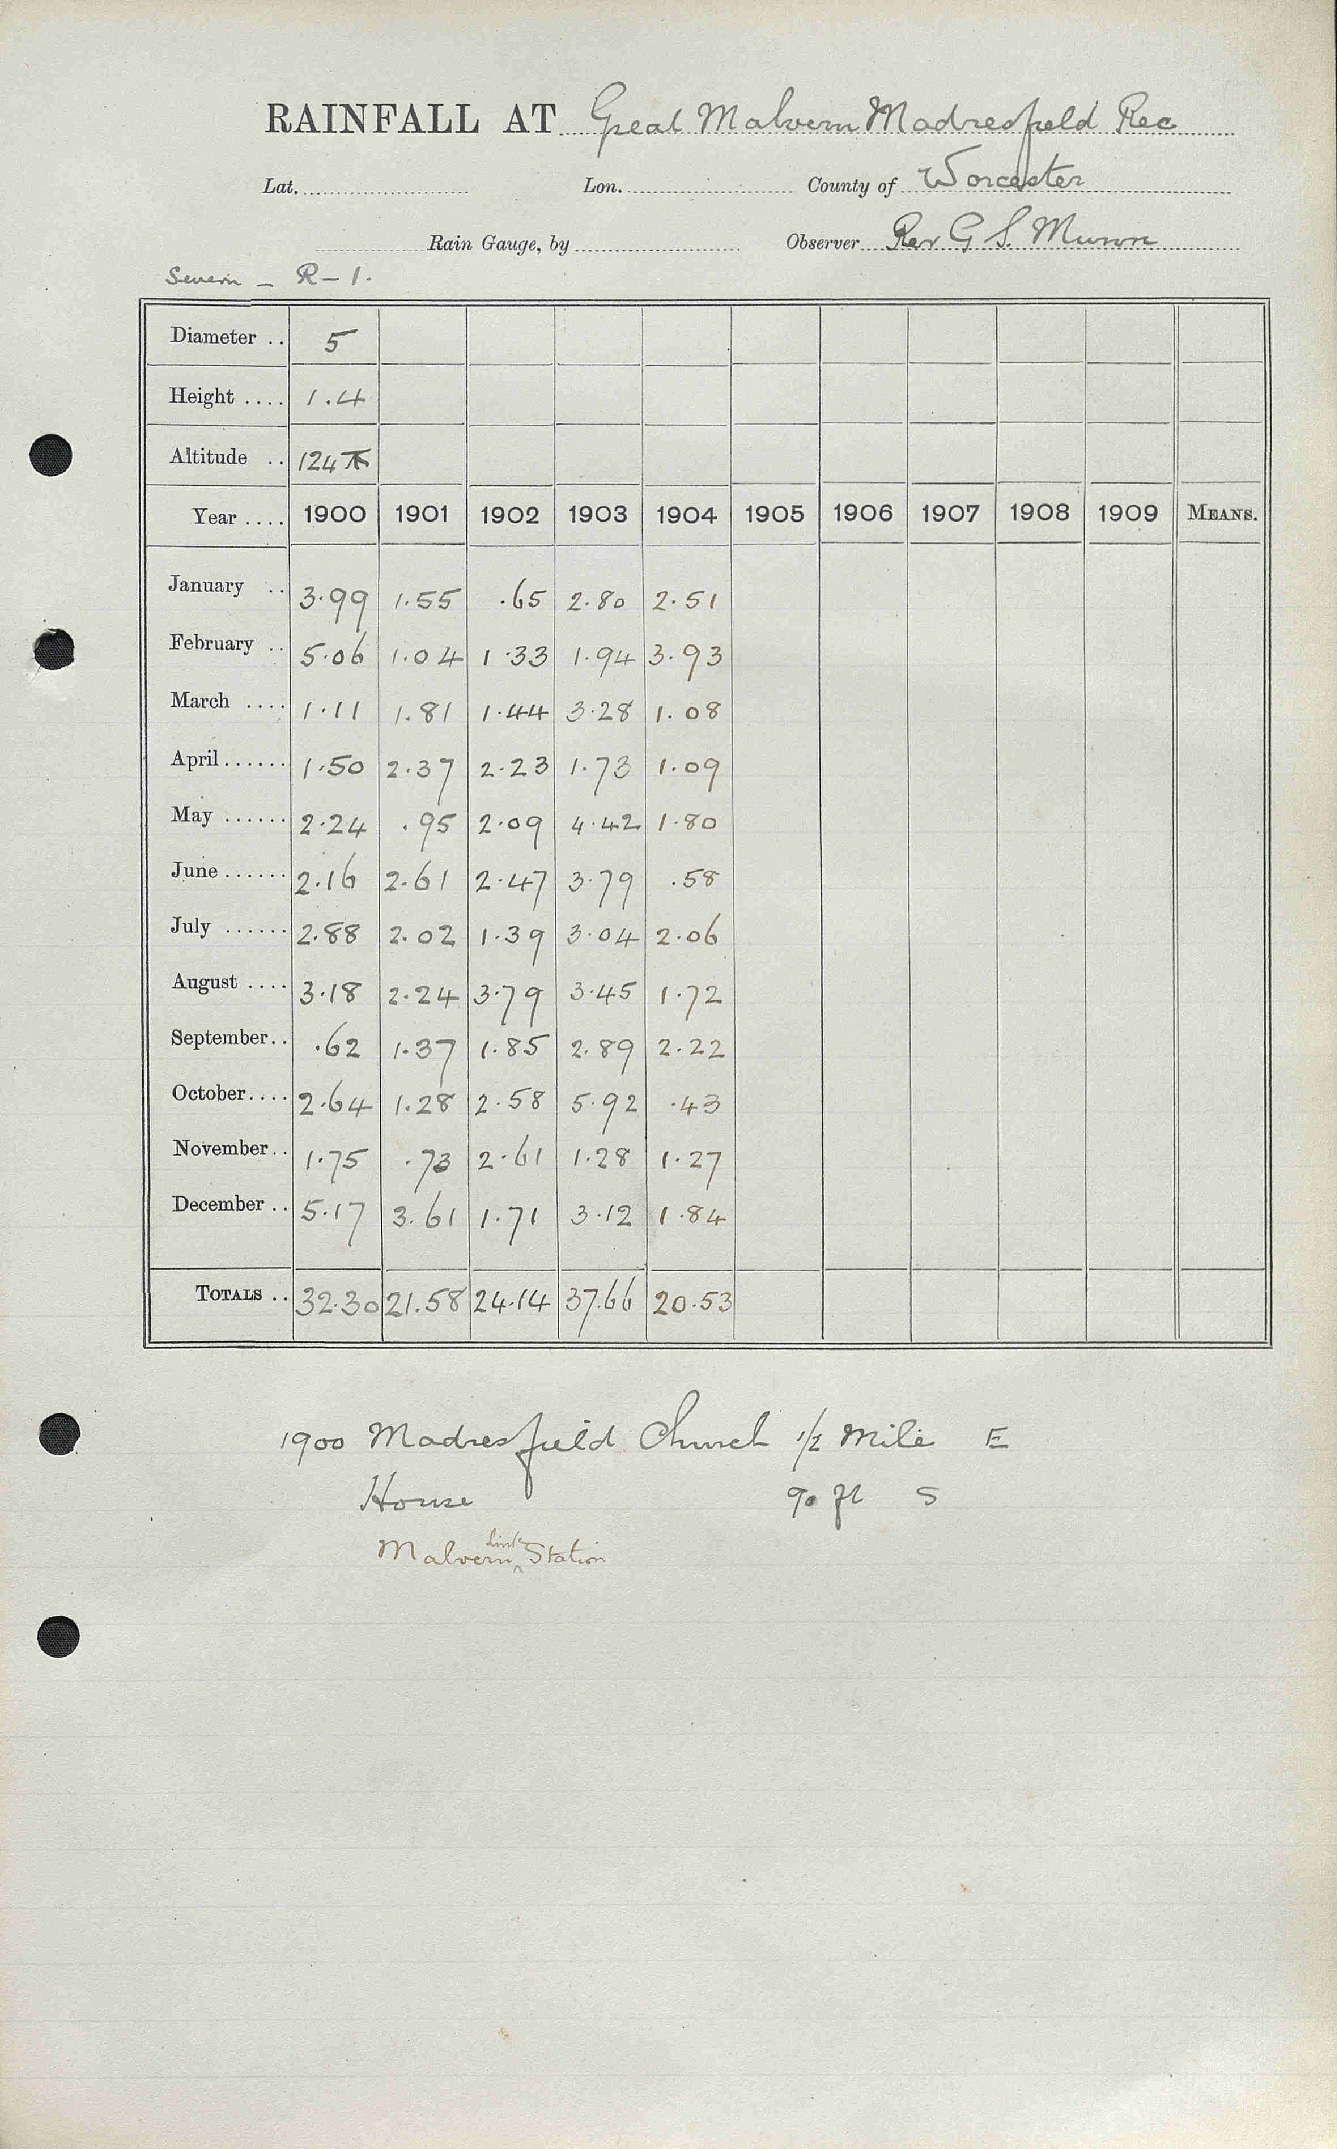 RAINFALL AT Great Malvern Madresfield Rec
Lat. Lon. County of Worcester
Rain Gauge, by Observer Rev G S. Munn
Severn - R-1.
Diameter .. 5
Height .... 1.4
Altitude .. 124
Year .... 1900 1901 1902 1903 1904 1905 1906 1907 1908 1909 MEANS.
January .. 3.99 1.55 .65 2.80 2.51
February .. 5.06 1.04 1.33 1.94 3.93
March .... 1.11 1.81 1.44 3.28 1.08
April...... 1.50 2.37 2.23 1.73 1.09
May ...... 2.24 .95 2.09 4.42 1.80
June...... 2.16 2.61 2.47 3.79 .58
July ...... 2.88 2.02 1.39 3.04 2.06
August .... 3.18 2.24 3.79 3.45 1.72
September.. .62 1.37 1.85 2.89 2.22
October.... 2.64 1.28 2.58 5.92 .43
November.. 1.75 .73 2.61 1.28 1.27
December .. 5.17 3.61 1.71 3.12 1.84
TOTALS .. 32.30 21.58 24.14 37.66 20.53
1900 Madresfield Church 1/2 mile E
House 90 ft S
Malvern Link Station